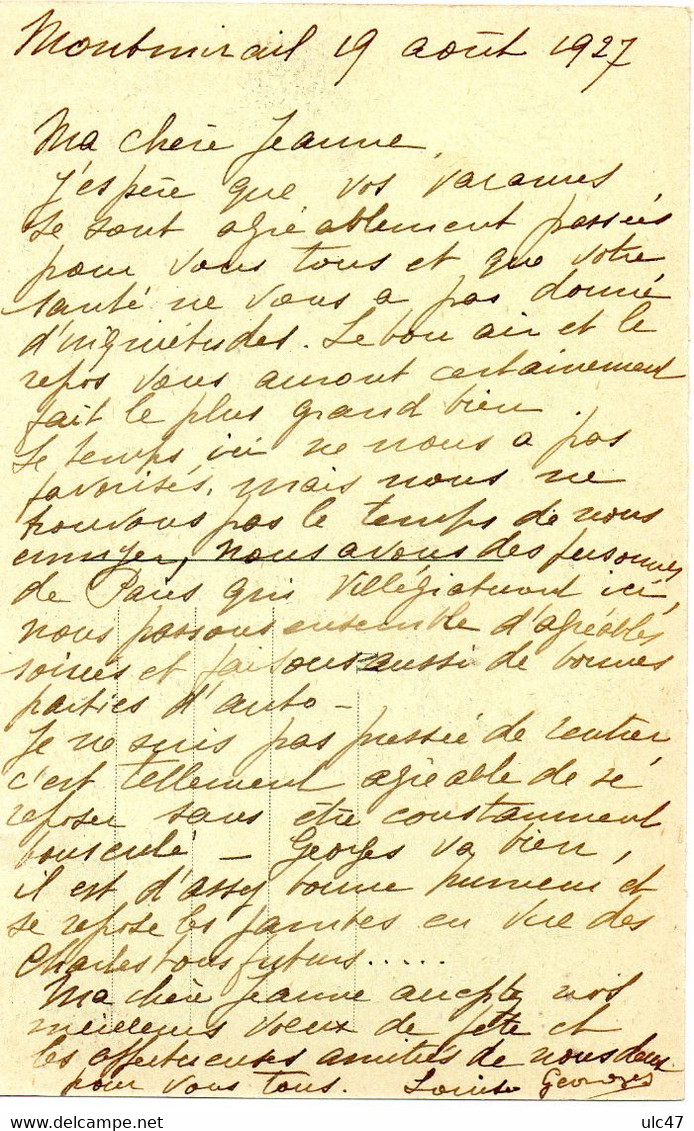 Montmirail 19 août 1927
Ma chère Jeanne,
J'espère que vos vacances
se sont agréablement passées
pour vous tous et que votre
santé ne vous a pas donné
d'inquiétudes. Le bon air et le
repos vous auront certainement
fait le plus grand bien
Le temps ici ne nous a pas
favorisés, mais nous ne
trouvons pas le temps de nous
ennuyer, nous avons des personnes
de Paris qui villégiaturent ici,
nous passons ensemble d'agréables
soirées et faisons aussi de bonnes
parties d'auto -
Je ne suis pas pressée de rentrer
c'est tellement agréable de se
reposer sans être constamment
bousculé - Georges va bien,
il est d'assez bonne humeur et
se repose les jambes en vue des
Charlestons futurs.....
Ma chère Jeanne acceptez nos
meilleurs voeux de fête et
les affectueuses amitiés de nous deux
pour vous tous. Louise Georges
ulc47